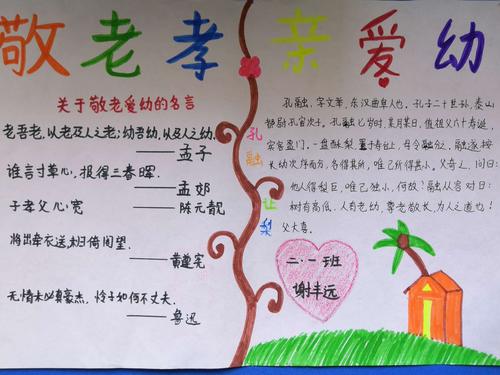 敬老孝亲爱幼
关于敬老爱幼的名言
老吾老,以老及人之老;幼吾幼,以及人之幼.
——孟子
谁言寸草心,报得三春晖.
——孟郊
子孝父心宽
——陈元靓
将出牵衣送,未归倚闾望.
——黄遵宪
无情未必真豪杰,怜子如何不丈夫.
——鲁迅
孔融让梨
孔融,字文举,东汉曲阜人也.孔子二十世孙,泰山
都尉孔宙次子.孔融七岁时,某月某日,值祖父六十寿诞,
宾客盈门.一盘酥梨,置于寿台上,母令融分之,融遂按
长幼次序而分,各得其所,唯己所得甚小.父奇之,问曰:
他人得梨巨,唯己独小,何故?融从容对曰:
树有高低,人有老幼,尊老敬长,为人之道也!
父大喜.
二.一班
谢丰远